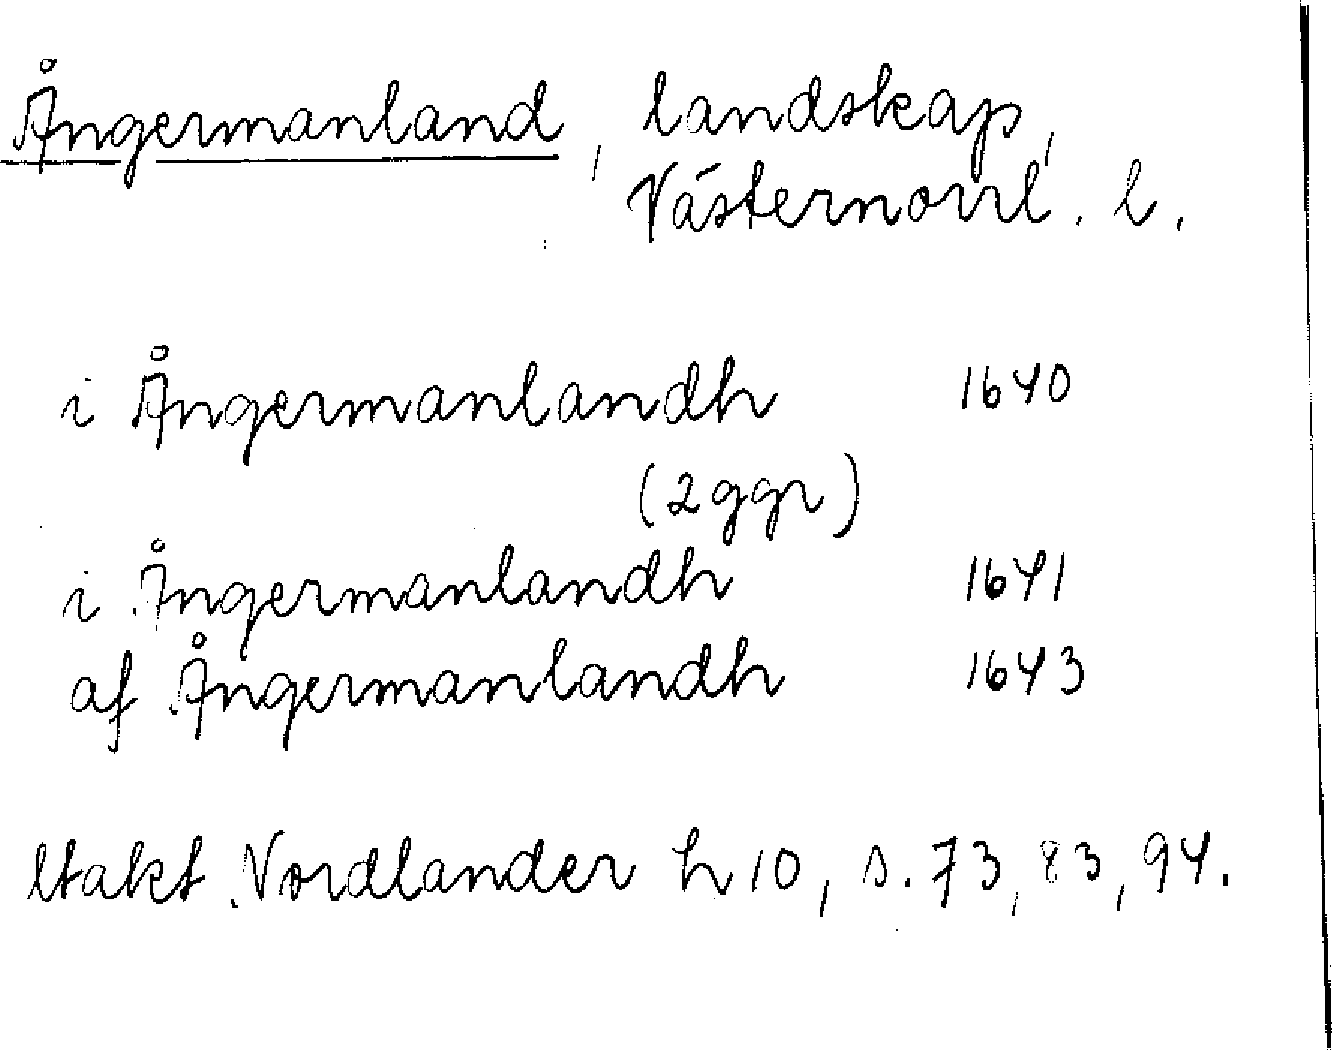 Ångermanland, landskap,
Västernorrl. l.
i Ångermanlandh 1640
(2 ggr)
i Ångermanlandh 1641
af Ångermanlandh 1643
Utakt Nordlander h 10, s. 73, 83, 94.